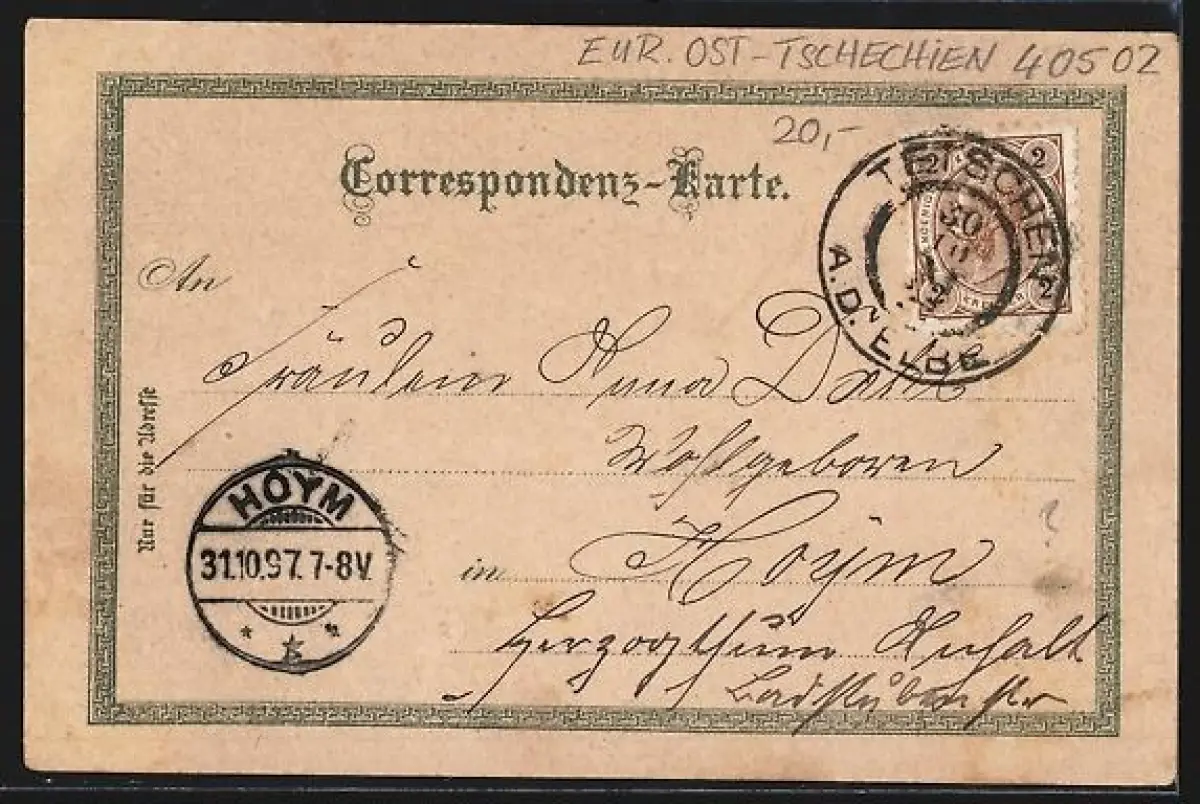 EUR. OST-TSCHECHIEN 40502
20,-
Correspondenz-Karte.
TETSCHEN
A.D. ELBE
30
2 2
2 2
An
Fräulein Anna
Wohlgeboren
in Hoÿm
Herzogthum Anhalt
Badstubenstr
Nur für die Adresse
HOYM
31.10.97. 7-8V.
?